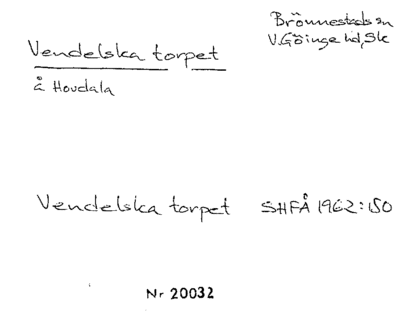 Brönnestads sn
V. Göinge hd, Sk
Vendelska torpet
å Hovdala
Vendelska torpet SHFÅ 1962:150
Nr 20032